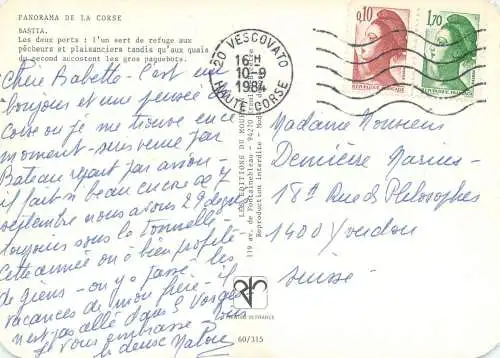 PANORAMA DE LA CORSE
BASTIA.
Les deux ports : l'un sert de refuge aux
pêcheurs et plaisanciers tandis qu'aux quais
du second accostent les gros paquebots.
Chère Babette - C'est un
bonjour et une pensée de
Corse ou je me trouve en ce
moment - suis venue par
Bateau repart par avion -
il fait si beau encore ce
septembre nous avons 29 degrés
toujours sous la tonnelle -
Cette année on a bien profité
de giens - on y a passé les
vacances de mon frère - il
n'est pas allé dans Vosges
Je vous embrasse - Vous
20 VESCOVATO
16H
10-9
1984
HAUTE CORSE
0,10
REPUBLIQUE FRANÇAISE
1,70
REPUBLIQUE FRANÇAISE
LES EDITIONS DU
119 av. de Fontainebleau - 94270
Reproduction interdite
Madame Monsieur
Marius
18 Rue des Philosophes
1400 Yverdon
Suisse
60/315